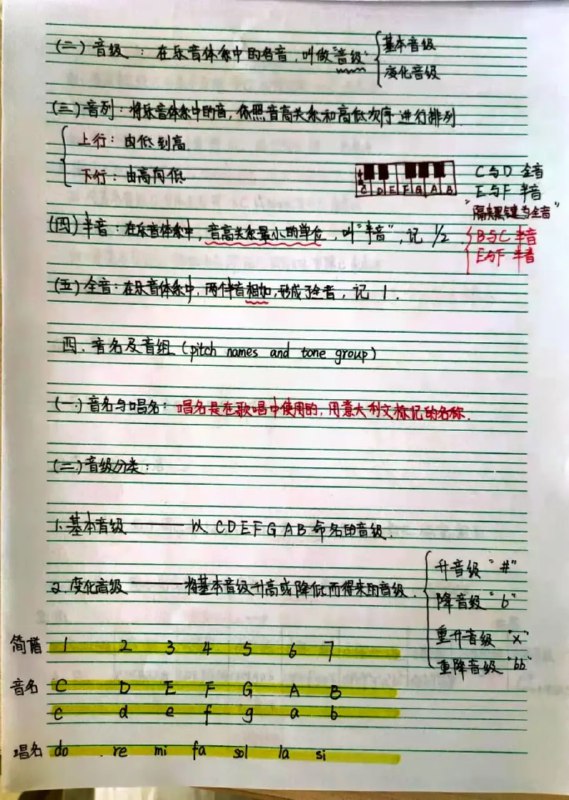 (二) 音级：在乐音体系中的各音，叫做“音级” 基本音级
变化音级
(三) 音列：将乐音体系中的音，依照音高关系和高低次序进行排列.
上行：由低到高
下行：由高向低
C D E F G A B
C与D 全音
E与F 半音
"隔黑键为全音"
(四) 半音：在乐音体系中，音高关系最小的单位，叫“半音”，记 1/2.
B与C 半音
E与F 半音
(五) 全音：在乐音体系中，两个半音相加，形成了全音，记 1.
四、音名及音组 (pitch names and tone group)
(一) 音名与唱名：唱名是在歌唱中使用的，用意大利文标记的名称.
(二) 音级分类：
1. 基本音级 —— 以 C D E F G A B 命名的音级.
2. 变化音级 —— 将基本音级升高或降低而得来的音级.
升音级 "#"
降音级 "b"
重升音级 "x"
重降音级 "bb"
简谱 1 2 3 4 5 6 7
音名 C D E F G A B
c d e f g a b
唱名 do re mi fa sol la si